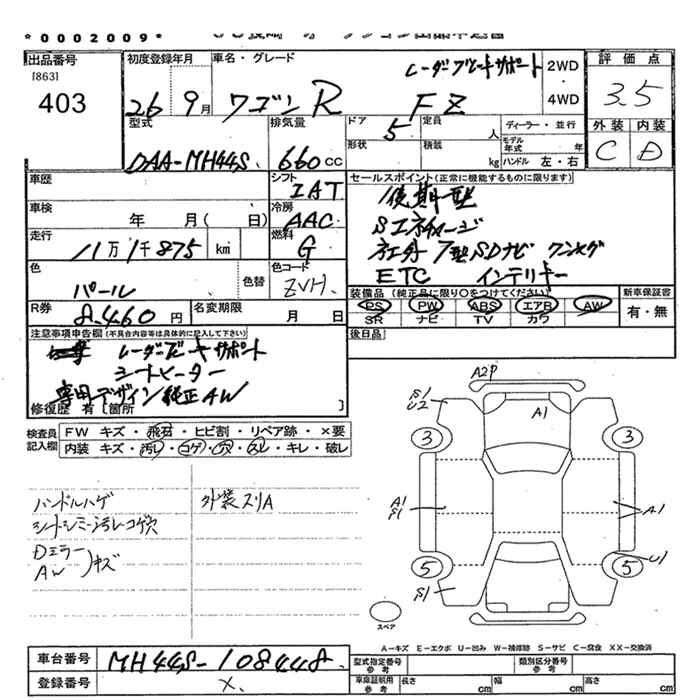 *0002009*
出品番号
[863]
403
初度登録年月
26年9月
車名・グレード
レーダーブレーキサポート
ワゴンR FZ
2WD・4WD
評価点
3.5
外装 内装
C D
型式
DAA-MH44S
排気量
660cc
ドア
5
形状
定員 人
積載 kg
ディーラー・並行
モデル年式 年
ハンドル 左・右
車歴
シフト
IAT
車検 年 月( 日)
冷房
AAC
走行
11万1千875 km
燃料
G
色
パール
色替
色コード
ZVH
R券
8460円
名変期限 月 日
セールスポイント(正常に機能するものに限ります)
後期型
Sエネチャージ
社外 7型SDナビ ワンセグ
ETC インテリキー
装備品(純正品に限り○をつけてください)
PS PW ABS エアB AW
SR ナビ TV カワ
新車保証書
有・無
後日品
注意事項申告欄(不具合内容等は具体的に記入して下さい)
レーダーブレーキサポート
シートヒーター
専用デザイン純正AW
修復歴 有[箇所 ]
検査員記入欄
FW キズ・飛石・ヒビ割・リペア跡・×要
内装 キズ・汚レ・コゲ・穴・スレ・キレ・破レ
ハンドルハゲ
外装スリA
シートシミ汚レコゲ穴
Dミラー
AW
キズ
A2P
S1
U2
A1
3
3
A1
S1
A1
U1
5
5
S1
スペア
A-キズ E-エクボ U-凹み W-補修跡 S-サビ C-腐食 XX-交換済
車台番号
MH44S-108448
登録番号
×
型式指定番号
参考
類別区分番号
参考
車庫証明用
参考
長さ cm
幅 cm
高さ cm